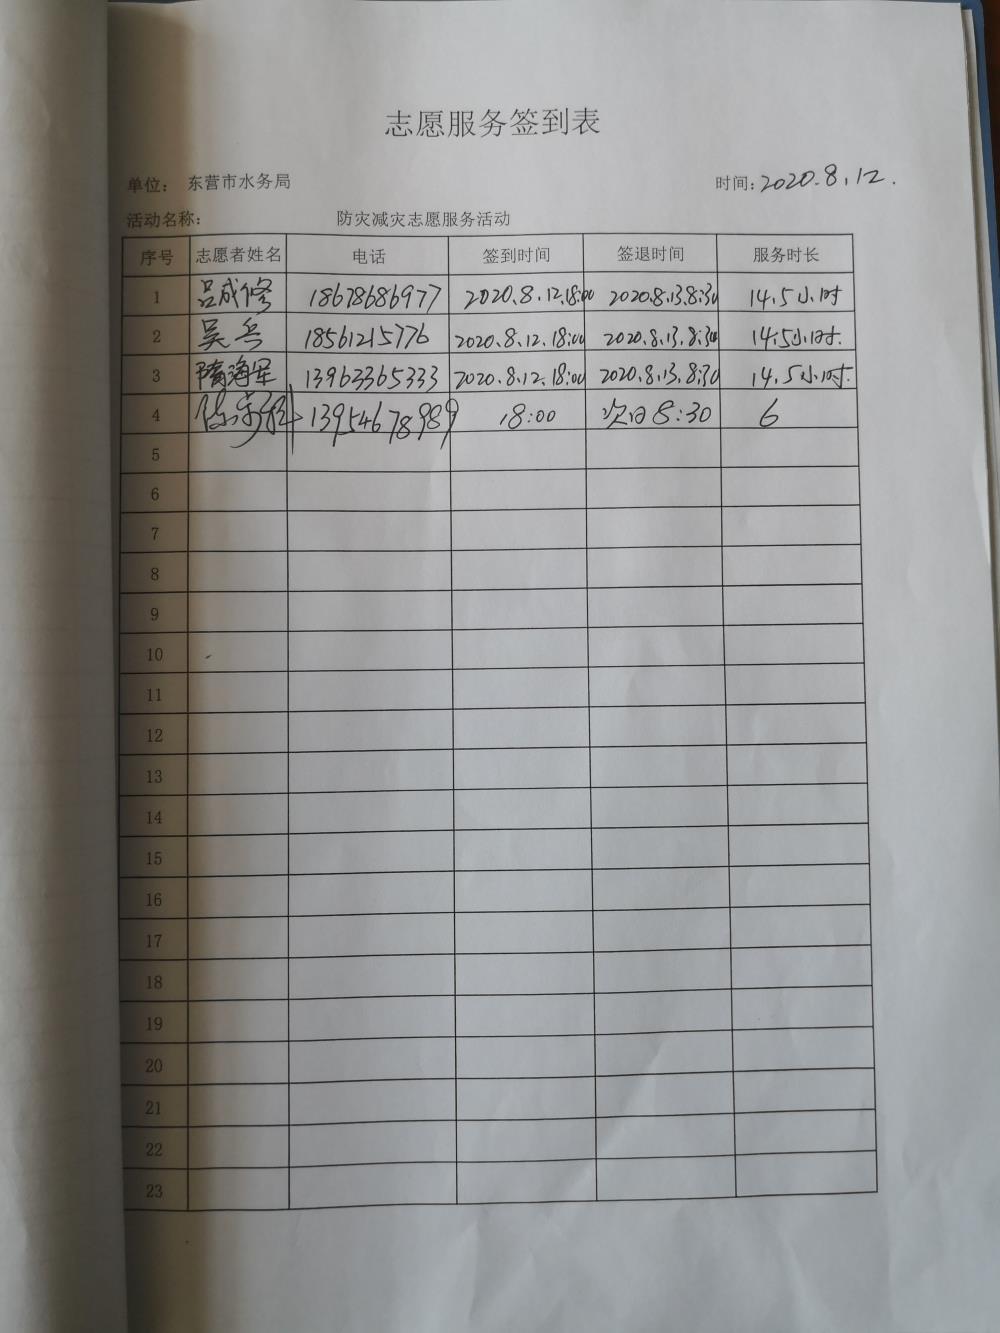 志愿服务签到表
单位: 东营市水务局 时间:2020.8.12.
活动名称: 防灾减灾志愿服务活动
序号 志愿者姓名 电话 签到时间 签退时间 服务时长
1 吕成修 18678686977 2020.8.12.18:00 2020.8.13.8:30 14.5小时
2 吴兵 18561215776 2020.8.12.18:00 2020.8.13.8:30 14.5小时.
3 隋海军 13963365333 2020.8.12.18:00 2020.8.13.8:30 14.5小时.
4 13954678989 18:00 次日8:30 6
5
6
7
8
9
10
11
12
13
14
15
16
17
18
19
20
21
22
23